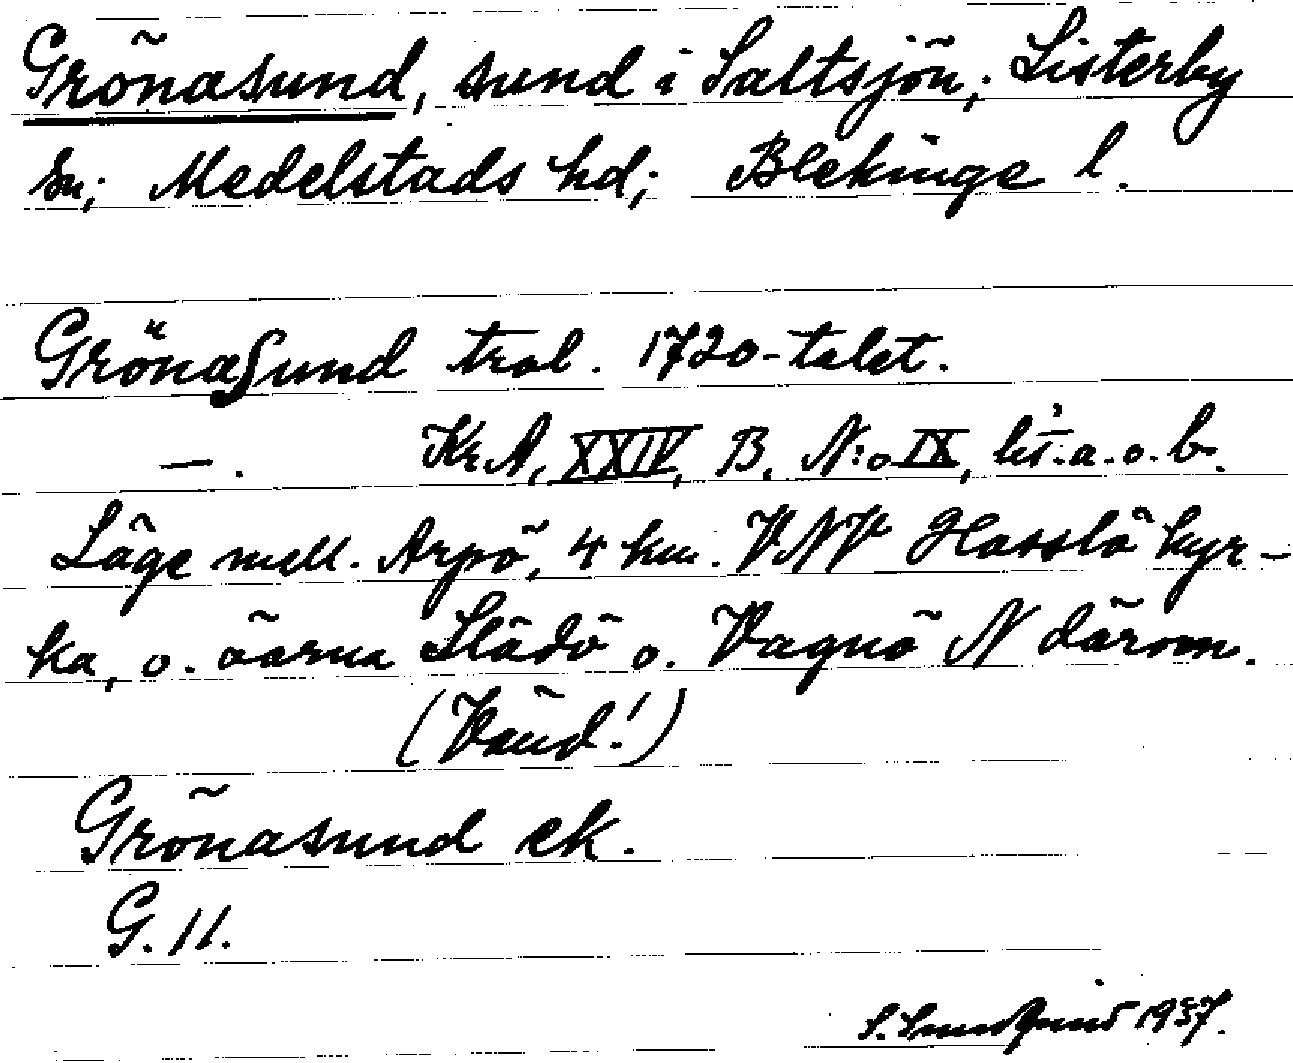 Grönasund, sund i Saltsjön; Listerby
sn; Medelstads hd; Blekinge l.
Grönasund trol. 1720-talet.
—. KrA, XXIV, B, N:o IX, lit. a. o. b.
Läge mell. Arpö, 4 km. VNV Hasslö kyr-
ka, o. öarna Slädö o. Vagnö N därom.
(Vänd!)
Grönasund ek.
G. 11.
S. 1937.